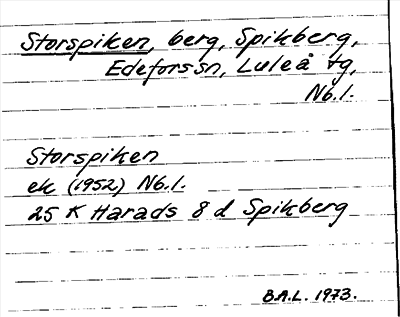 Storspiken, berg, Spikberg,
Edefors sn, Luleå tg,
Nb.l.
Storspiken
ek (1952) Nb.l.
25 K Harads 8 d Spikberg
B.A.L. 1973.